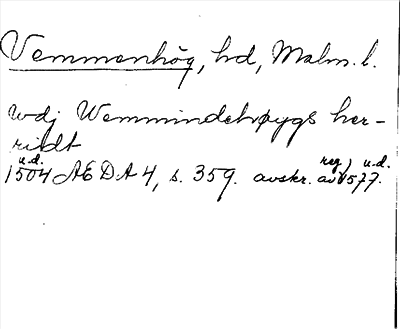 Vemmenhög, hd, Malm. l.
wdj Wemmindehøygs her-
ridt
u.d. reg) u.d.
1504 AEDA 4, s. 359. avskr. av 1577.